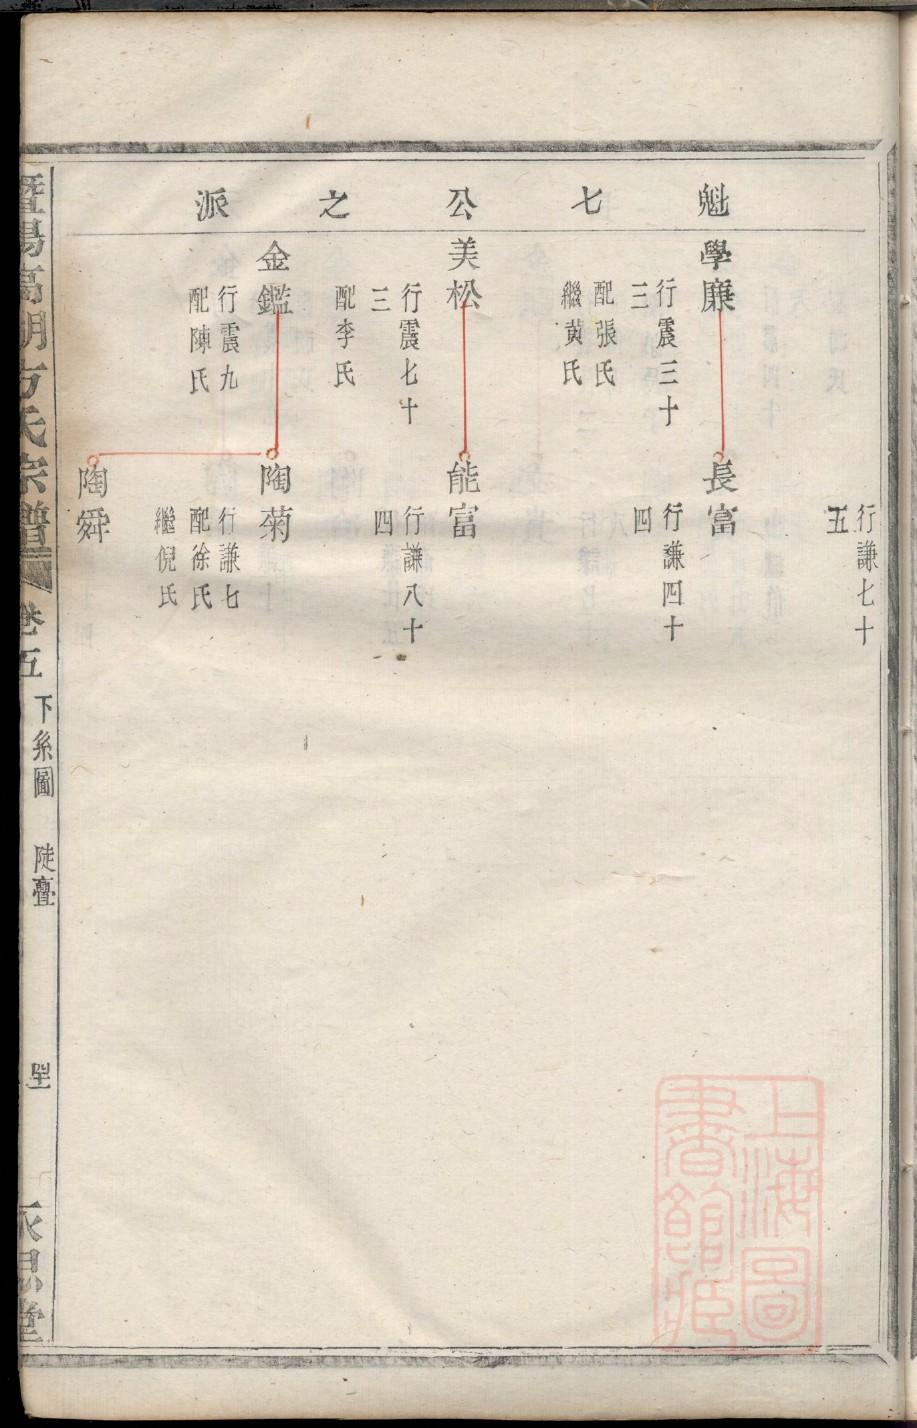 魁七公之派
行謙七十
五
學廉
行震三十
三
配張氏
繼黄氏
長富
行謙四十
四
美松
行震七十
三
配李氏
能富
行謙八十
四
金鑑
行震九
配陳氏
陶菊
行謙七
配徐氏
繼倪氏
陶舜
暨陽高湖方氏宗譜
卷五
下系圖
陡亹
永思堂
上海圖
書館藏